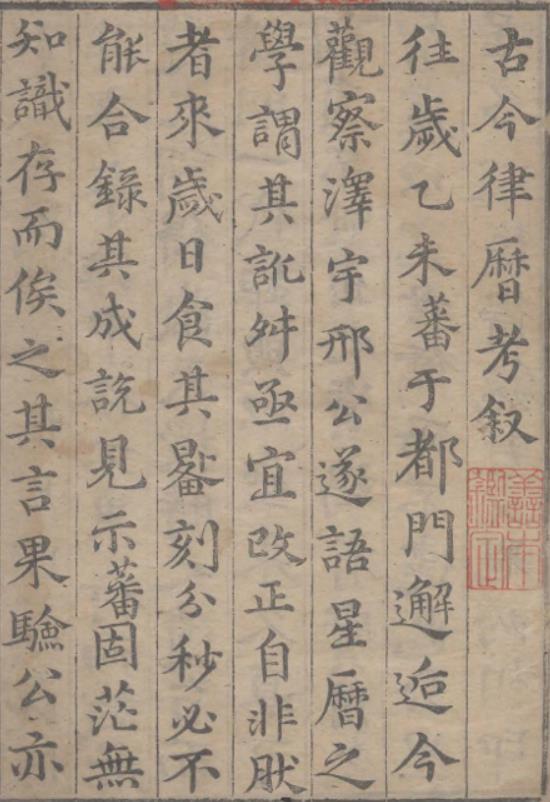 古今律曆考叙
往歲乙未蕃于都門邂逅今
觀察澤宇邢公遂語星曆之
學謂其訛舛亟宜改正自非肰
者來歲日食其晷刻分秒必不
能合錄其成說見示蕃固茫無
知識存而俟之其言果驗公亦